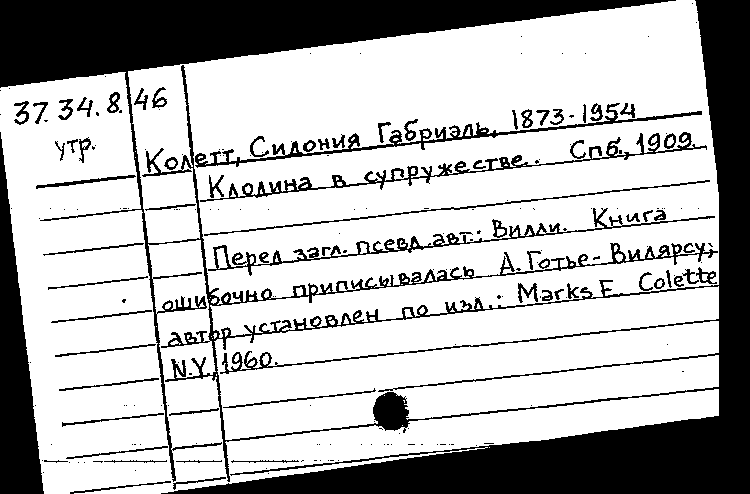 37.34.8.46
утр.
Колетт, Сидония Габриэль, 1873-1954
Клодина в супружестве.. Спб., 1909.
Перед загл. псевд. авт.: Вилли. Книга
ошибочно приписывалась А. Готье-Вилярсу;
автор установлен по изд.: Marks E. Colette
N.Y., 1960.